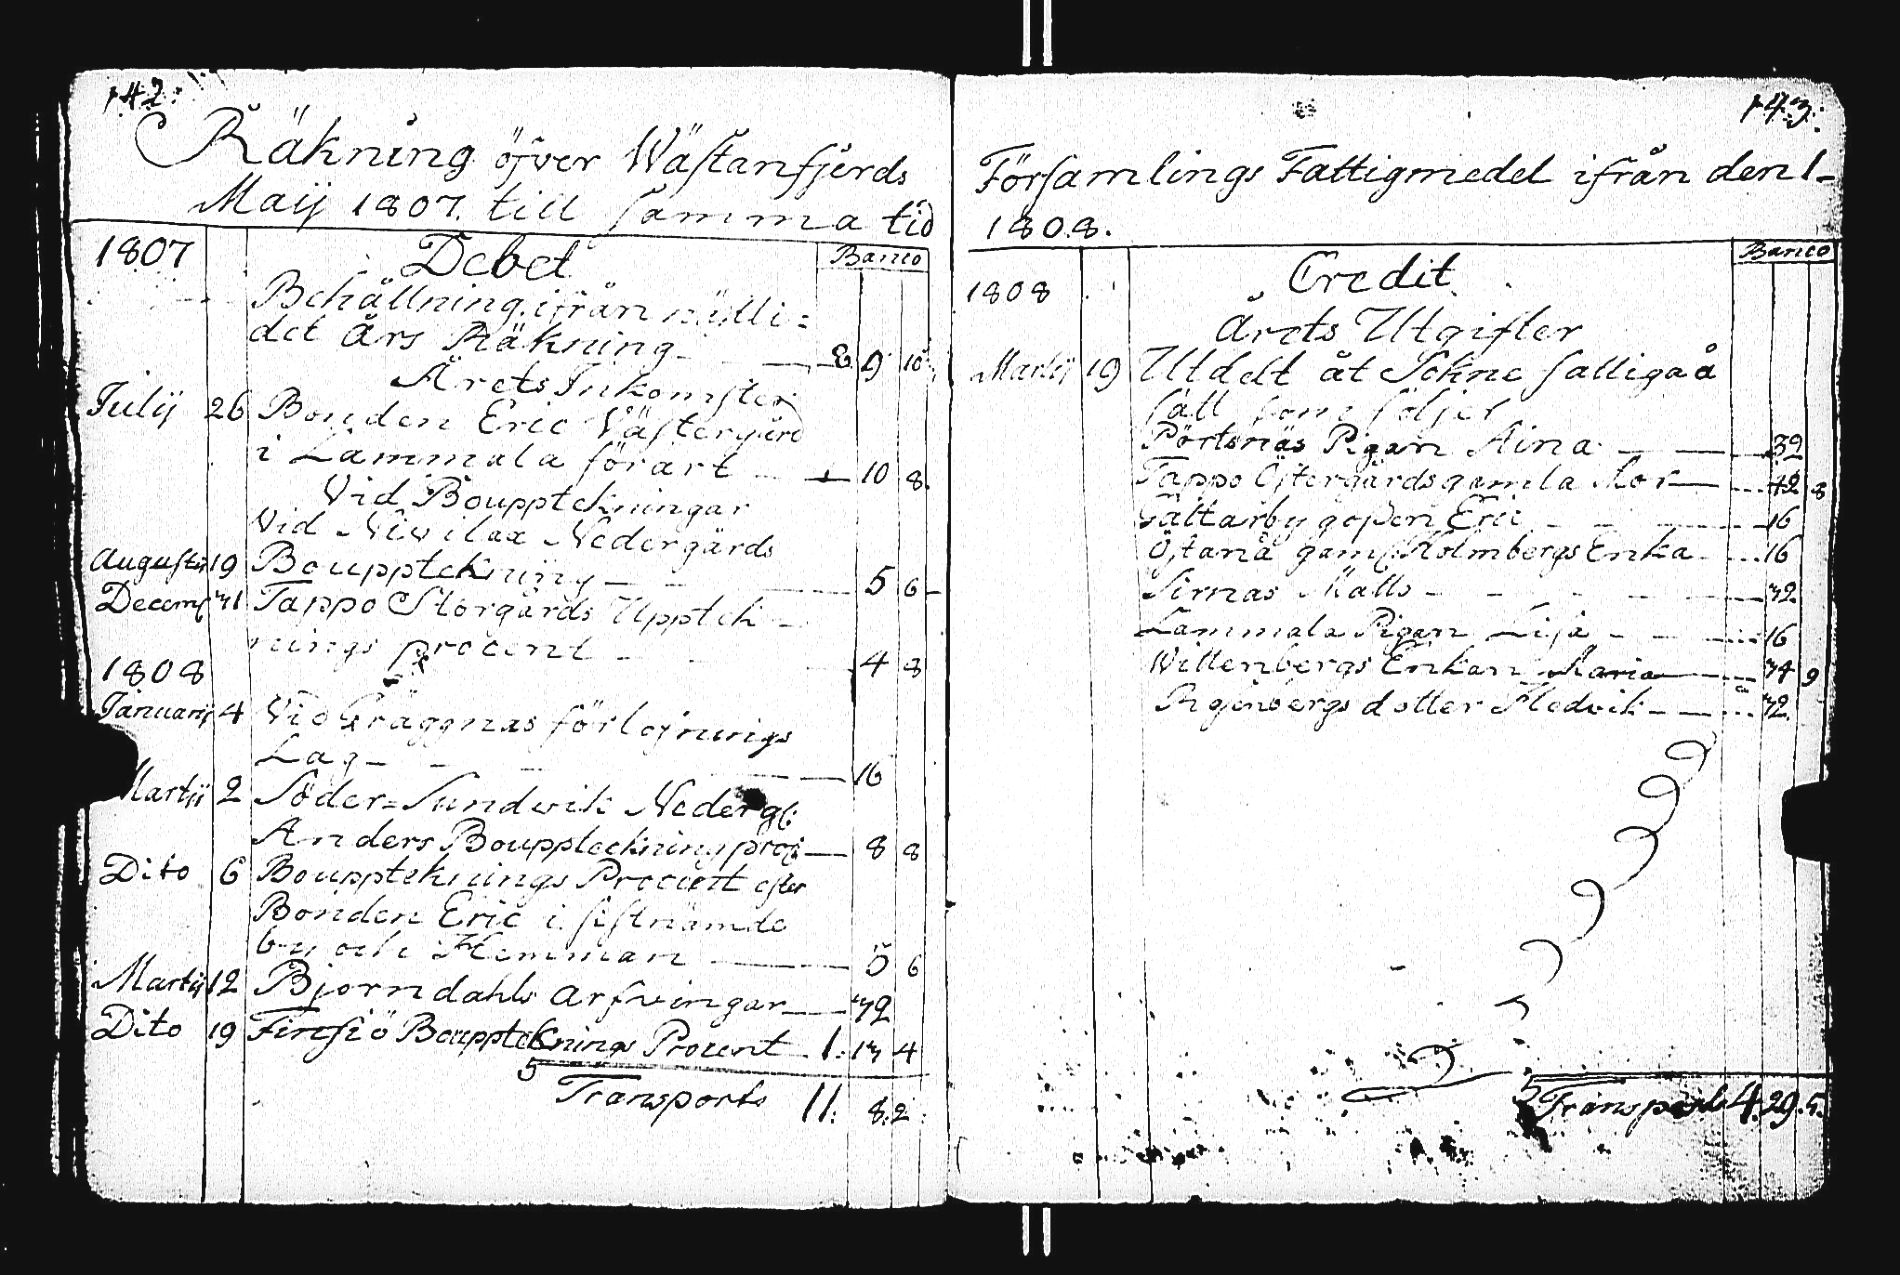 142.
Räkning öfver Wästanfjerds
Maij 1807. till samma tid
1807 Debet Banco
Behållning ifrån nälli=
det Års Räkning 8. 9 10
Årets Inkomster
Julij 26 Bonden Eric Västergård
i Lammala förärt 10 8.
Vid Bouppteckningar
Vid Nivilax Nedergårds
Augusti 19 Bouppteckning 5 6
Decemb 31 Tappo Storgårds Upptek
nings procent 4 8
1808
Januarij 4 Vid Gräggnäs förlofnings
Lag 16
Martij 2 Söder=Sundvik Nederg:
Anders Bouppteckning proc 8 8
Dito 6 Bouppteknings Procent efter
Bonden Eric i sistnämde
by och Hemman 5 6
Martij 12 Bjorndahls arfvingar 32
Dito 19 Finsiö Bouppteknings Procent 1. 13 4
Transports 11. 8. 2.
143.
Församlings Fattigmedel ifrån den 1
1808.
1808 Credit Banco
Årets Utgifter
Martij 19 Utdelt åt Sokne fattiga å
sätt som följer
Pörtsnäs Pigan Aina 32
Tappo Östergårds gamla Mor 42 8
Galtarby gossen Eric 16
Östanå gaml Holmbergs Enka 16
Sirnas Matts 32
Lammala Pigan Lisa 16
Willenbergs Enkan Maria 34 9
dotter Hedvik 32.
Transport 4. 29. 5.